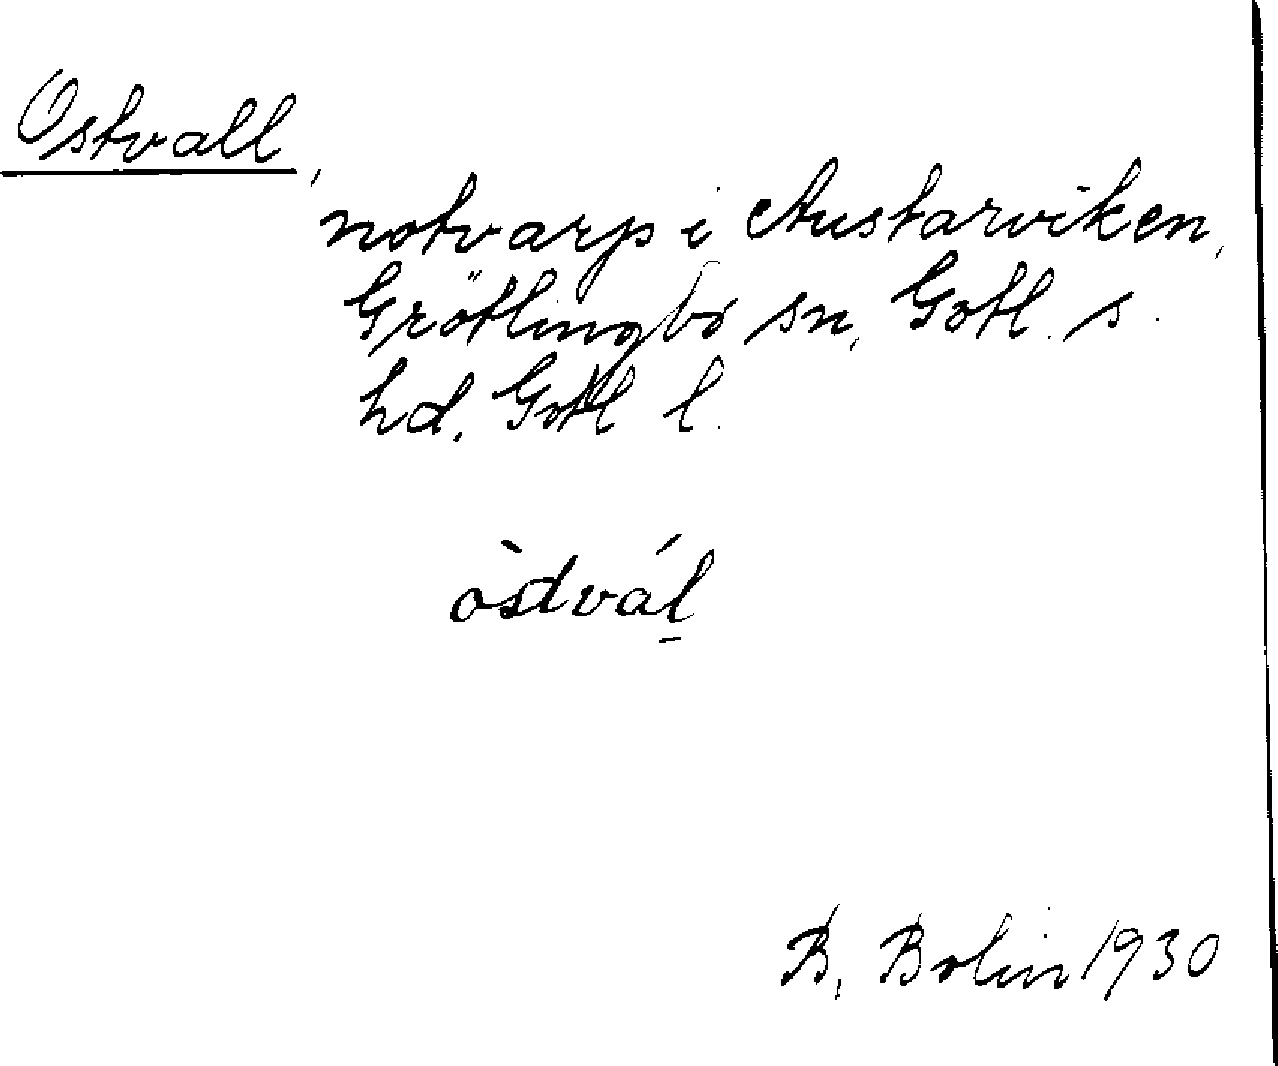 Ostvall,
notvarp i Austarviken,
Grötlingbo sn, Gotl. s.
hd, Gotl l.
òstvál̠
B. Bolin 1930